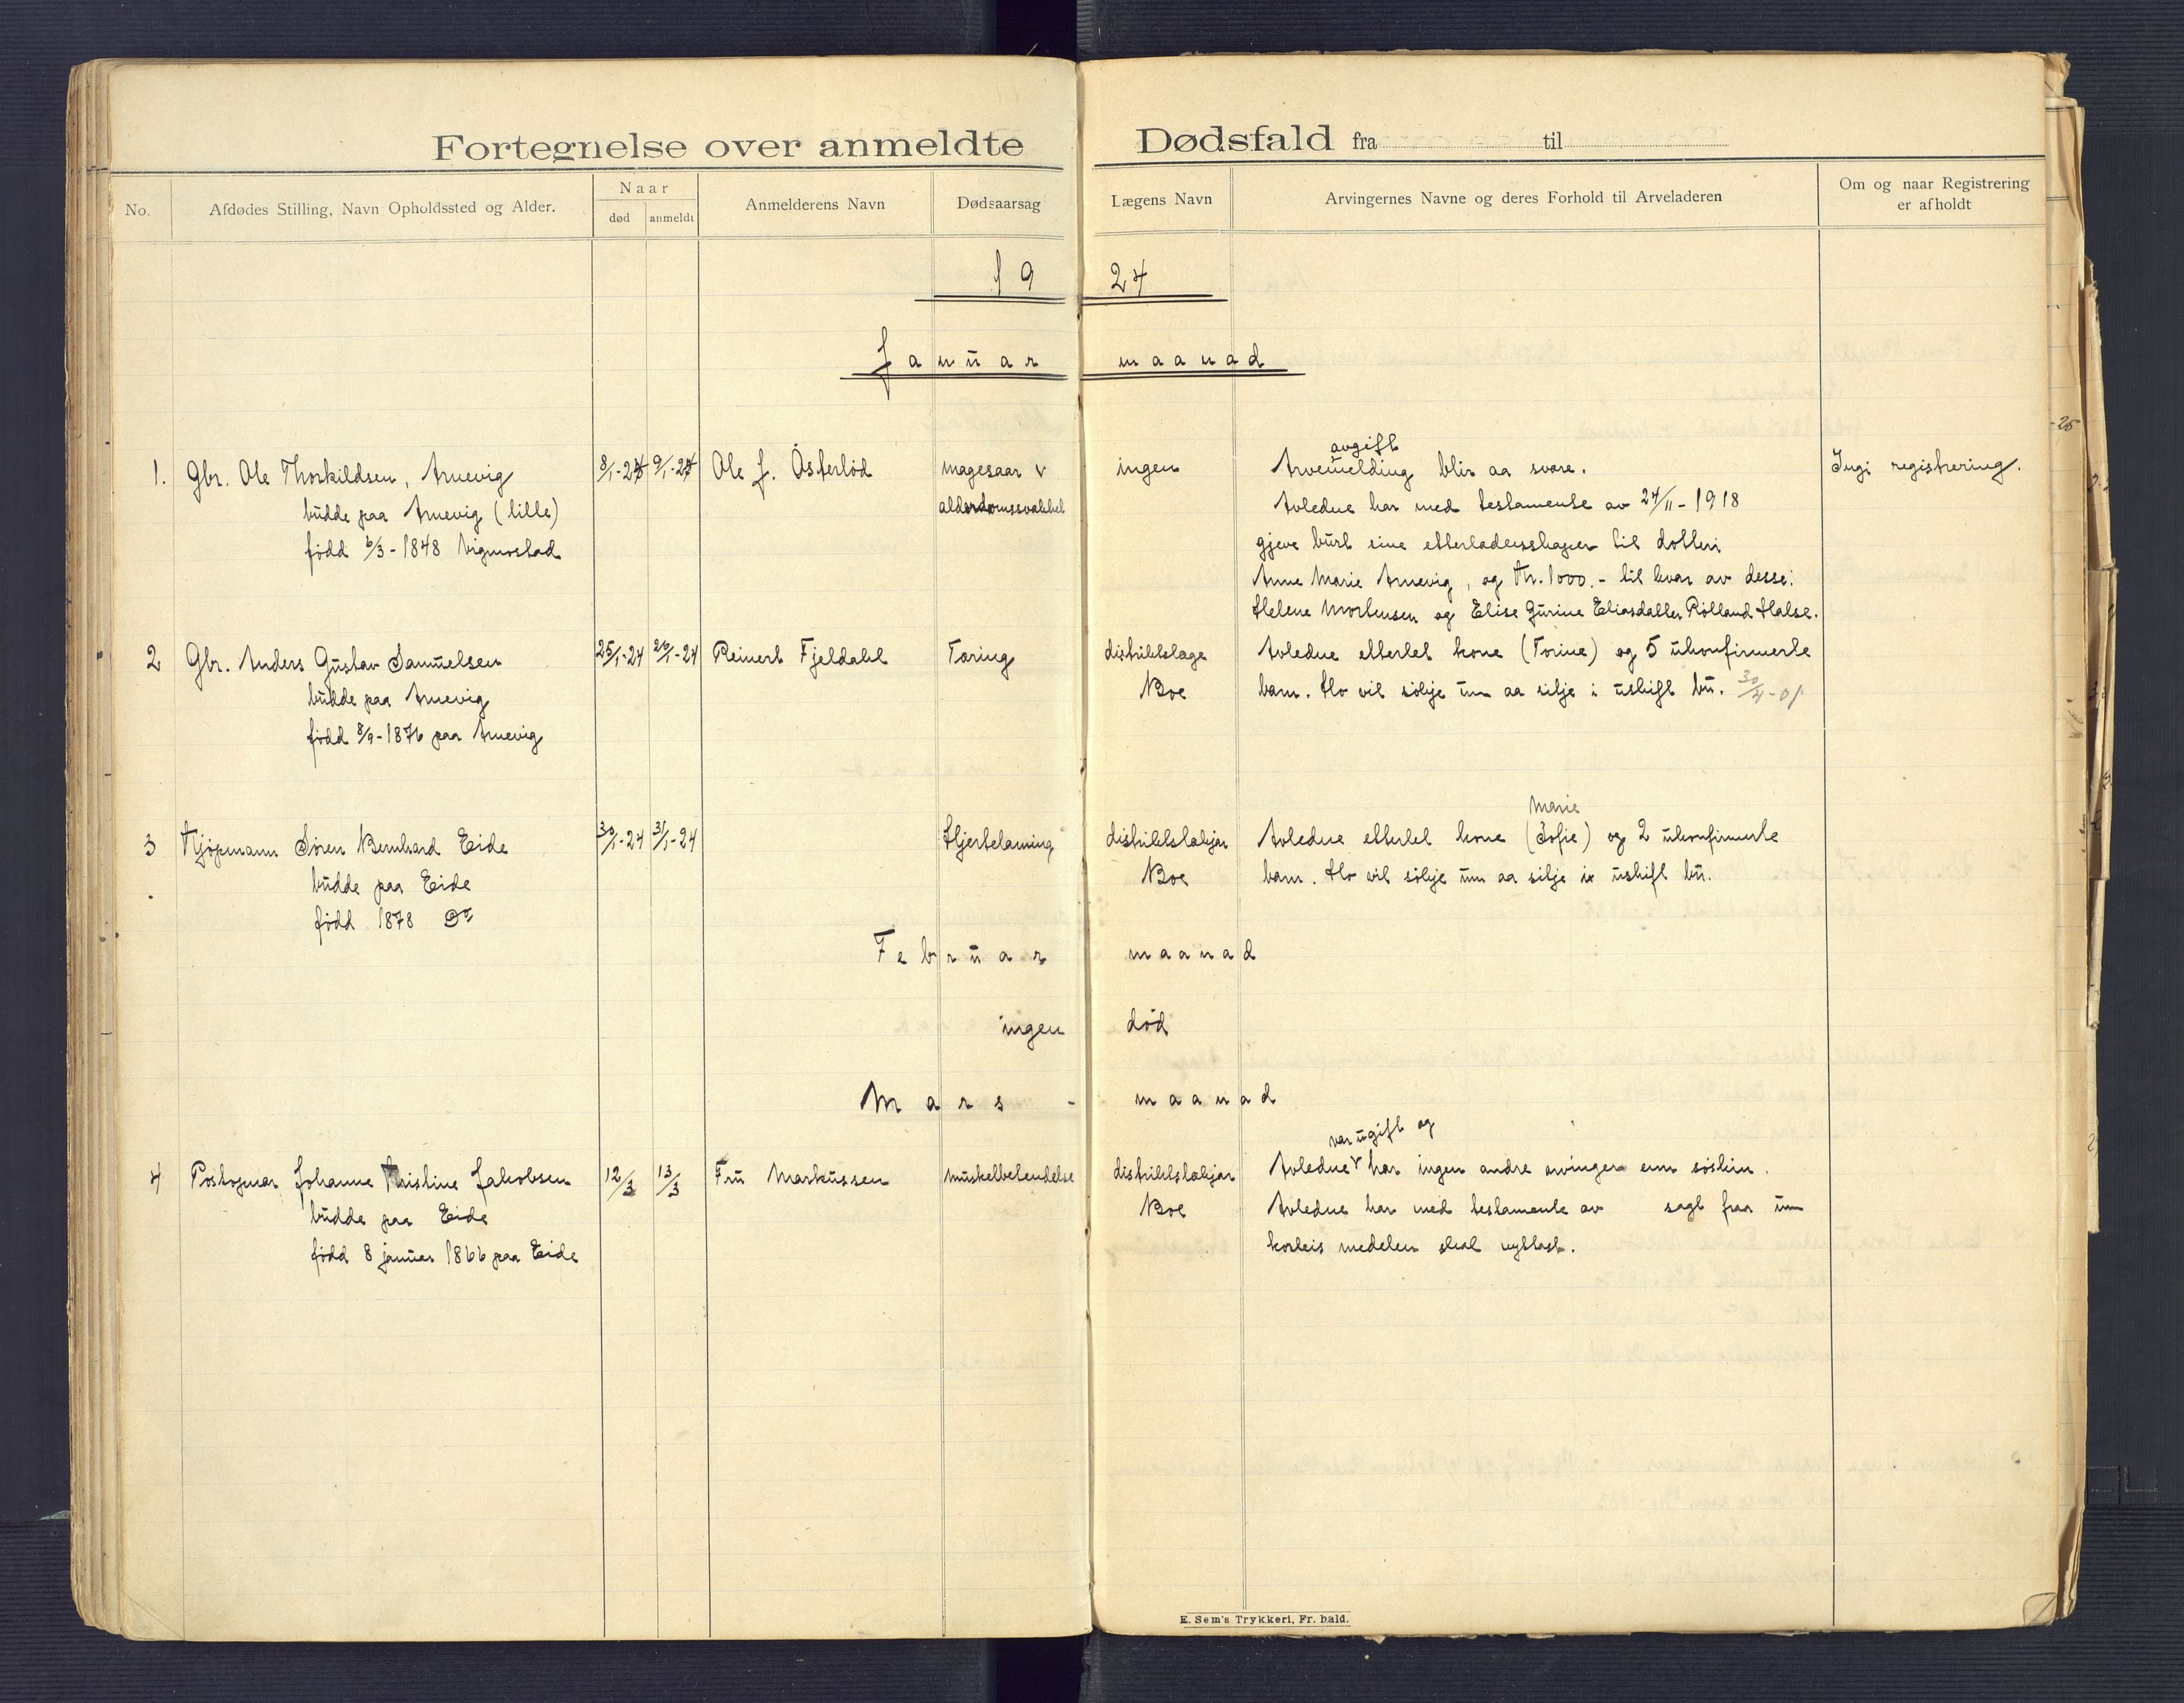 Fortegnelse over anmeldte Dødsfald fra til
No.
Afdødes Stilling, Navn Opholdssted og Alder.
Naar
død
anmeldt
Anmelderens Navn
Dødsaarsag
Lægens Navn
Arvingernes Navne og deres Forhold til Arveladeren
Om og naar Registrering
er afholdt
1924
Januar maanad
1. Gbr. Ole Thorkildsen, Arnevig
budde paa Arnevig (lille)
född 6/3-1848 Vigmostad
8/1-24
9/1-24
Ole J. Österlöd
magesaar v
alderdomssvakkel
ingen
avgift
Arvemelding blir aa svare.
Avledne har med testamente av 24/11-1918
gjeve burt sine etterladenskaper til dotteri
Anne Marie Arnevig, og Kr. 1000.- til kvar av desse:
Helene Mortensen og Elise Gurine Eliasdatter Rölland Halse.
Ingi registrering.
2 Gbr. Anders Gustav Samuelsen
budde paa Arnevig
född 8/9-1876 paa Arnevig
25/1-24
26/1-24
Reinert Fjeldahl
Tæring
distriktslæge
Boe
Avledne etterlet kone (Torine) og 5 ukonfirmerte
barn. Ho vil sökje um aa sitje i uskift bu. 30/4-01
3 Kjöpmann Sören Bernhard Eide
budde paa Eide
född 1878 Do
30/1-24
31/1-24
Hjertelamning
distriktslækjar
Boe
Marie
Avledne etterlet kone (Sofie) og 2 ukonfirmerte
barn. Ho vil sökje um aa sitje i uskift bu.
Februar maanad
ingen död
Mars - maanad
4 Postopnar Johanne Kristine Jakobsen
budde paa Eide
född 8 januar 1866 paa Eide
12/3
13/3
Fru Markussen
muskelbetendelse
distriktslækjar
Boe
var ugift og
Avledne har ingen andre arvinger enn söskin.
Avledne har med testamente av sagt fraa um
korleis medelen skal nyttast.
E. Sem's Trykkeri, Fr. hald.